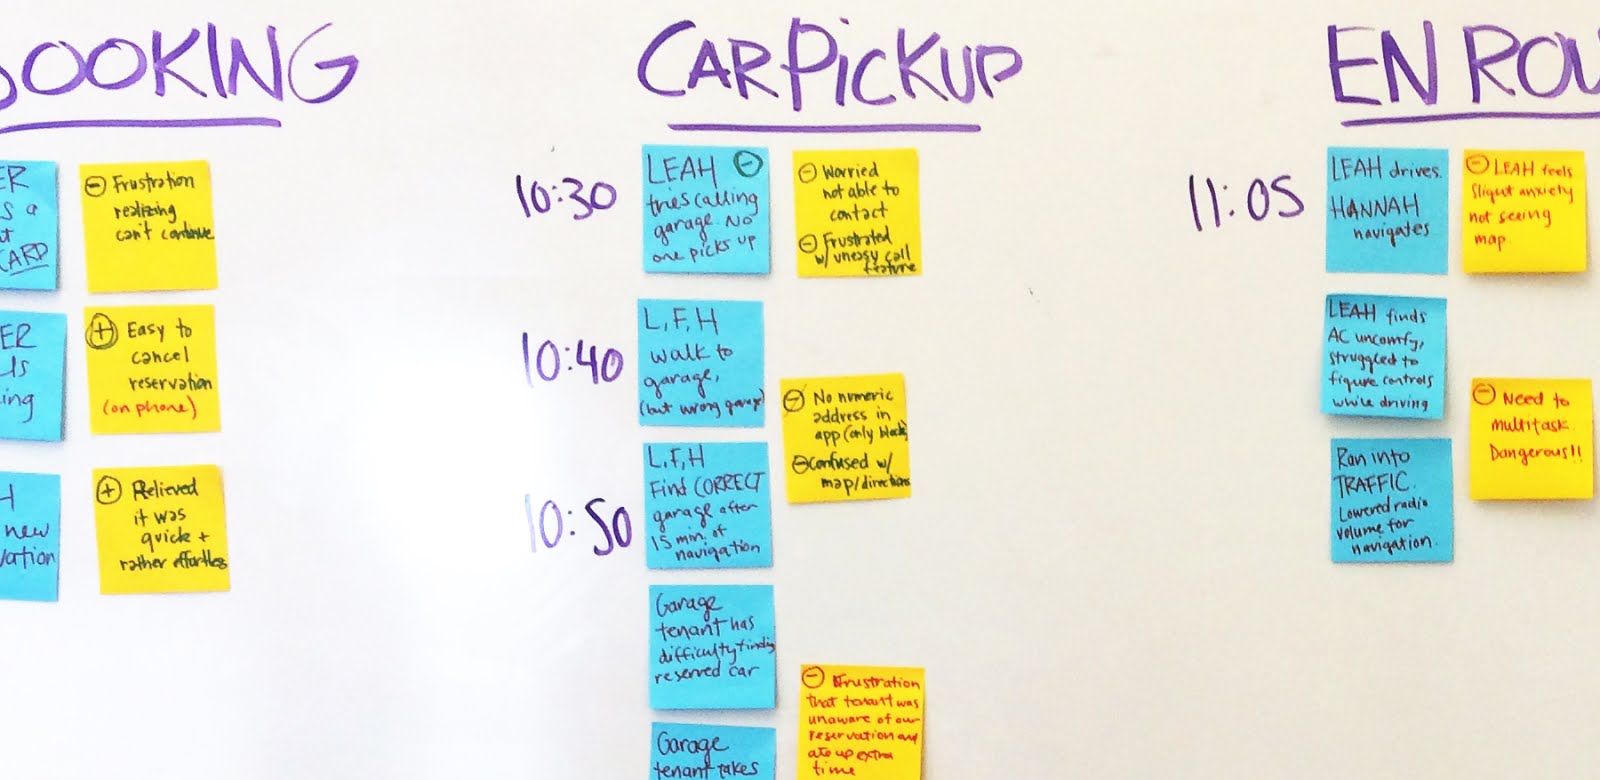 BOOKING
ER
s a
t
CARD
⊖ Frustration
realizing
can't continue
ER
ls
ing
⊕ Easy to
cancel
reservation
(on phone)
H
new
vation
⊕ Relieved
it was
quick +
rather effortless
CAR PiCKUP
10:30
LEAH ⊖
tries calling
garage. No
one picks up
⊖ Worried
not able to
contact
⊖ Frustrated
w/ uneasy call
feature
10:40
L, F, H
walk to
garage,
(but wrong garage)
⊖ No numeric
address in
app (only block)
⊖ Confused w/
map/directions
10:50
L, F, H
Find CORRECT
garage after
15 min. of
navigation
Garage
tenant has
difficulty finding
reserved car
⊖ Frustration
that tenant was
unaware of our
reservation and
ate up extra
time
Garage
tenant takes
EN ROU
11:05
LEAH drives.
HANNAH
navigates
⊖ LEAH feels
Sligut anxiety
not seeing
map.
LEAH finds
AC uncomfy,
struggled to
figure controls
while driving
⊖ Need to
multitask.
Dangerous!!
Ran into
TRAFFIC.
Lowered radio
volume for
navigation.